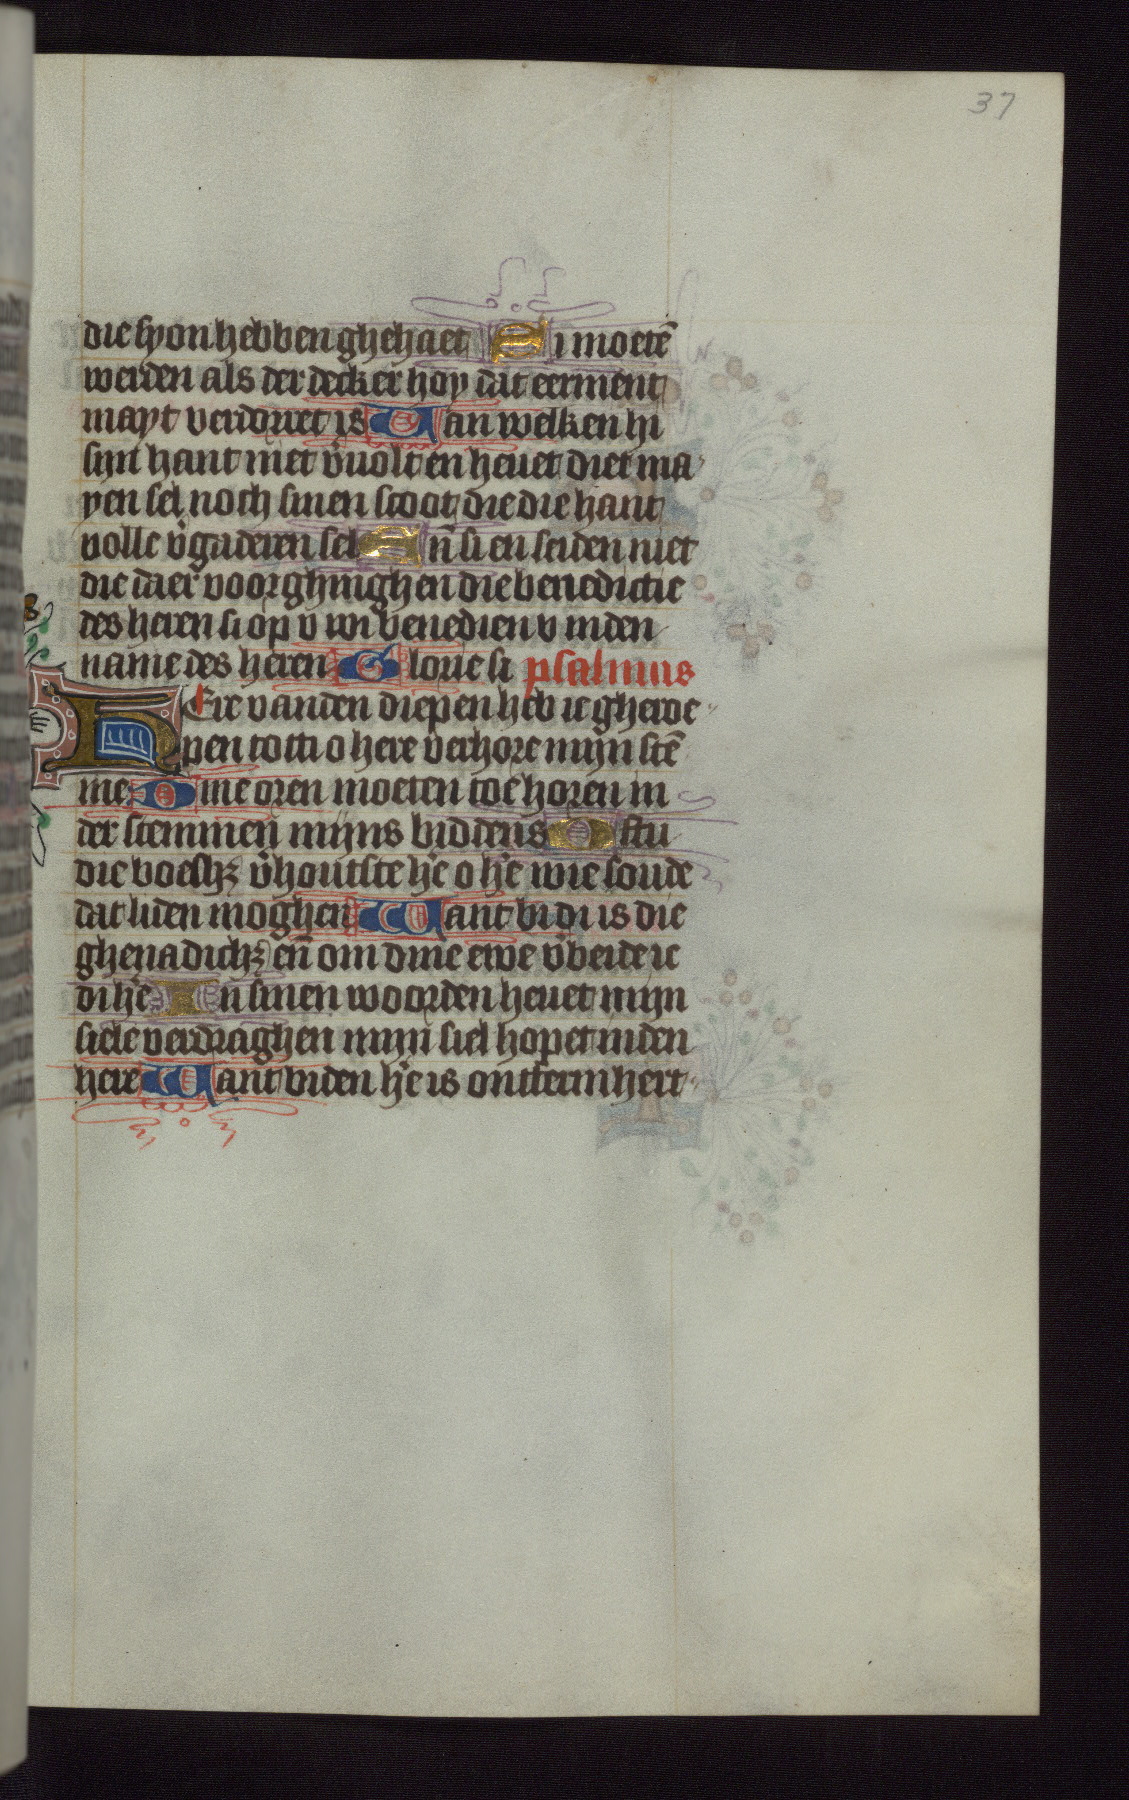 37
die syon hebben ghehaet Si moetē
werden als der decker hoy dat eerment
mayt verdorret is Van welken hi
sijn hant niet v̄uolt en heuet diet ma
yen sel noch sinen scoot die die hant
volle v̄gaderen sel Eñ si en seiden niet
die daer voorghinghen die benedictie
des heren si op v wi benedien v inden
name des heren Glorie si psalmus
HEre vanden diepen heb ic gheroe
pen totti o here verhore mijn stē
me Dine oren moeten toe horen in
der stemmen mijns biddens Ofstu
die boeshꝫ v̄houtste he̅ o he̅ wie soude
dat liden moghen Want bi di is die
ghenadichꝫ eñ om dine ewe v̄beide ic
di he̅ In sinen woorden heuet mijn
siele verdraghen mijn siel hopet inden
here Want biden he̅ is ontfermhert